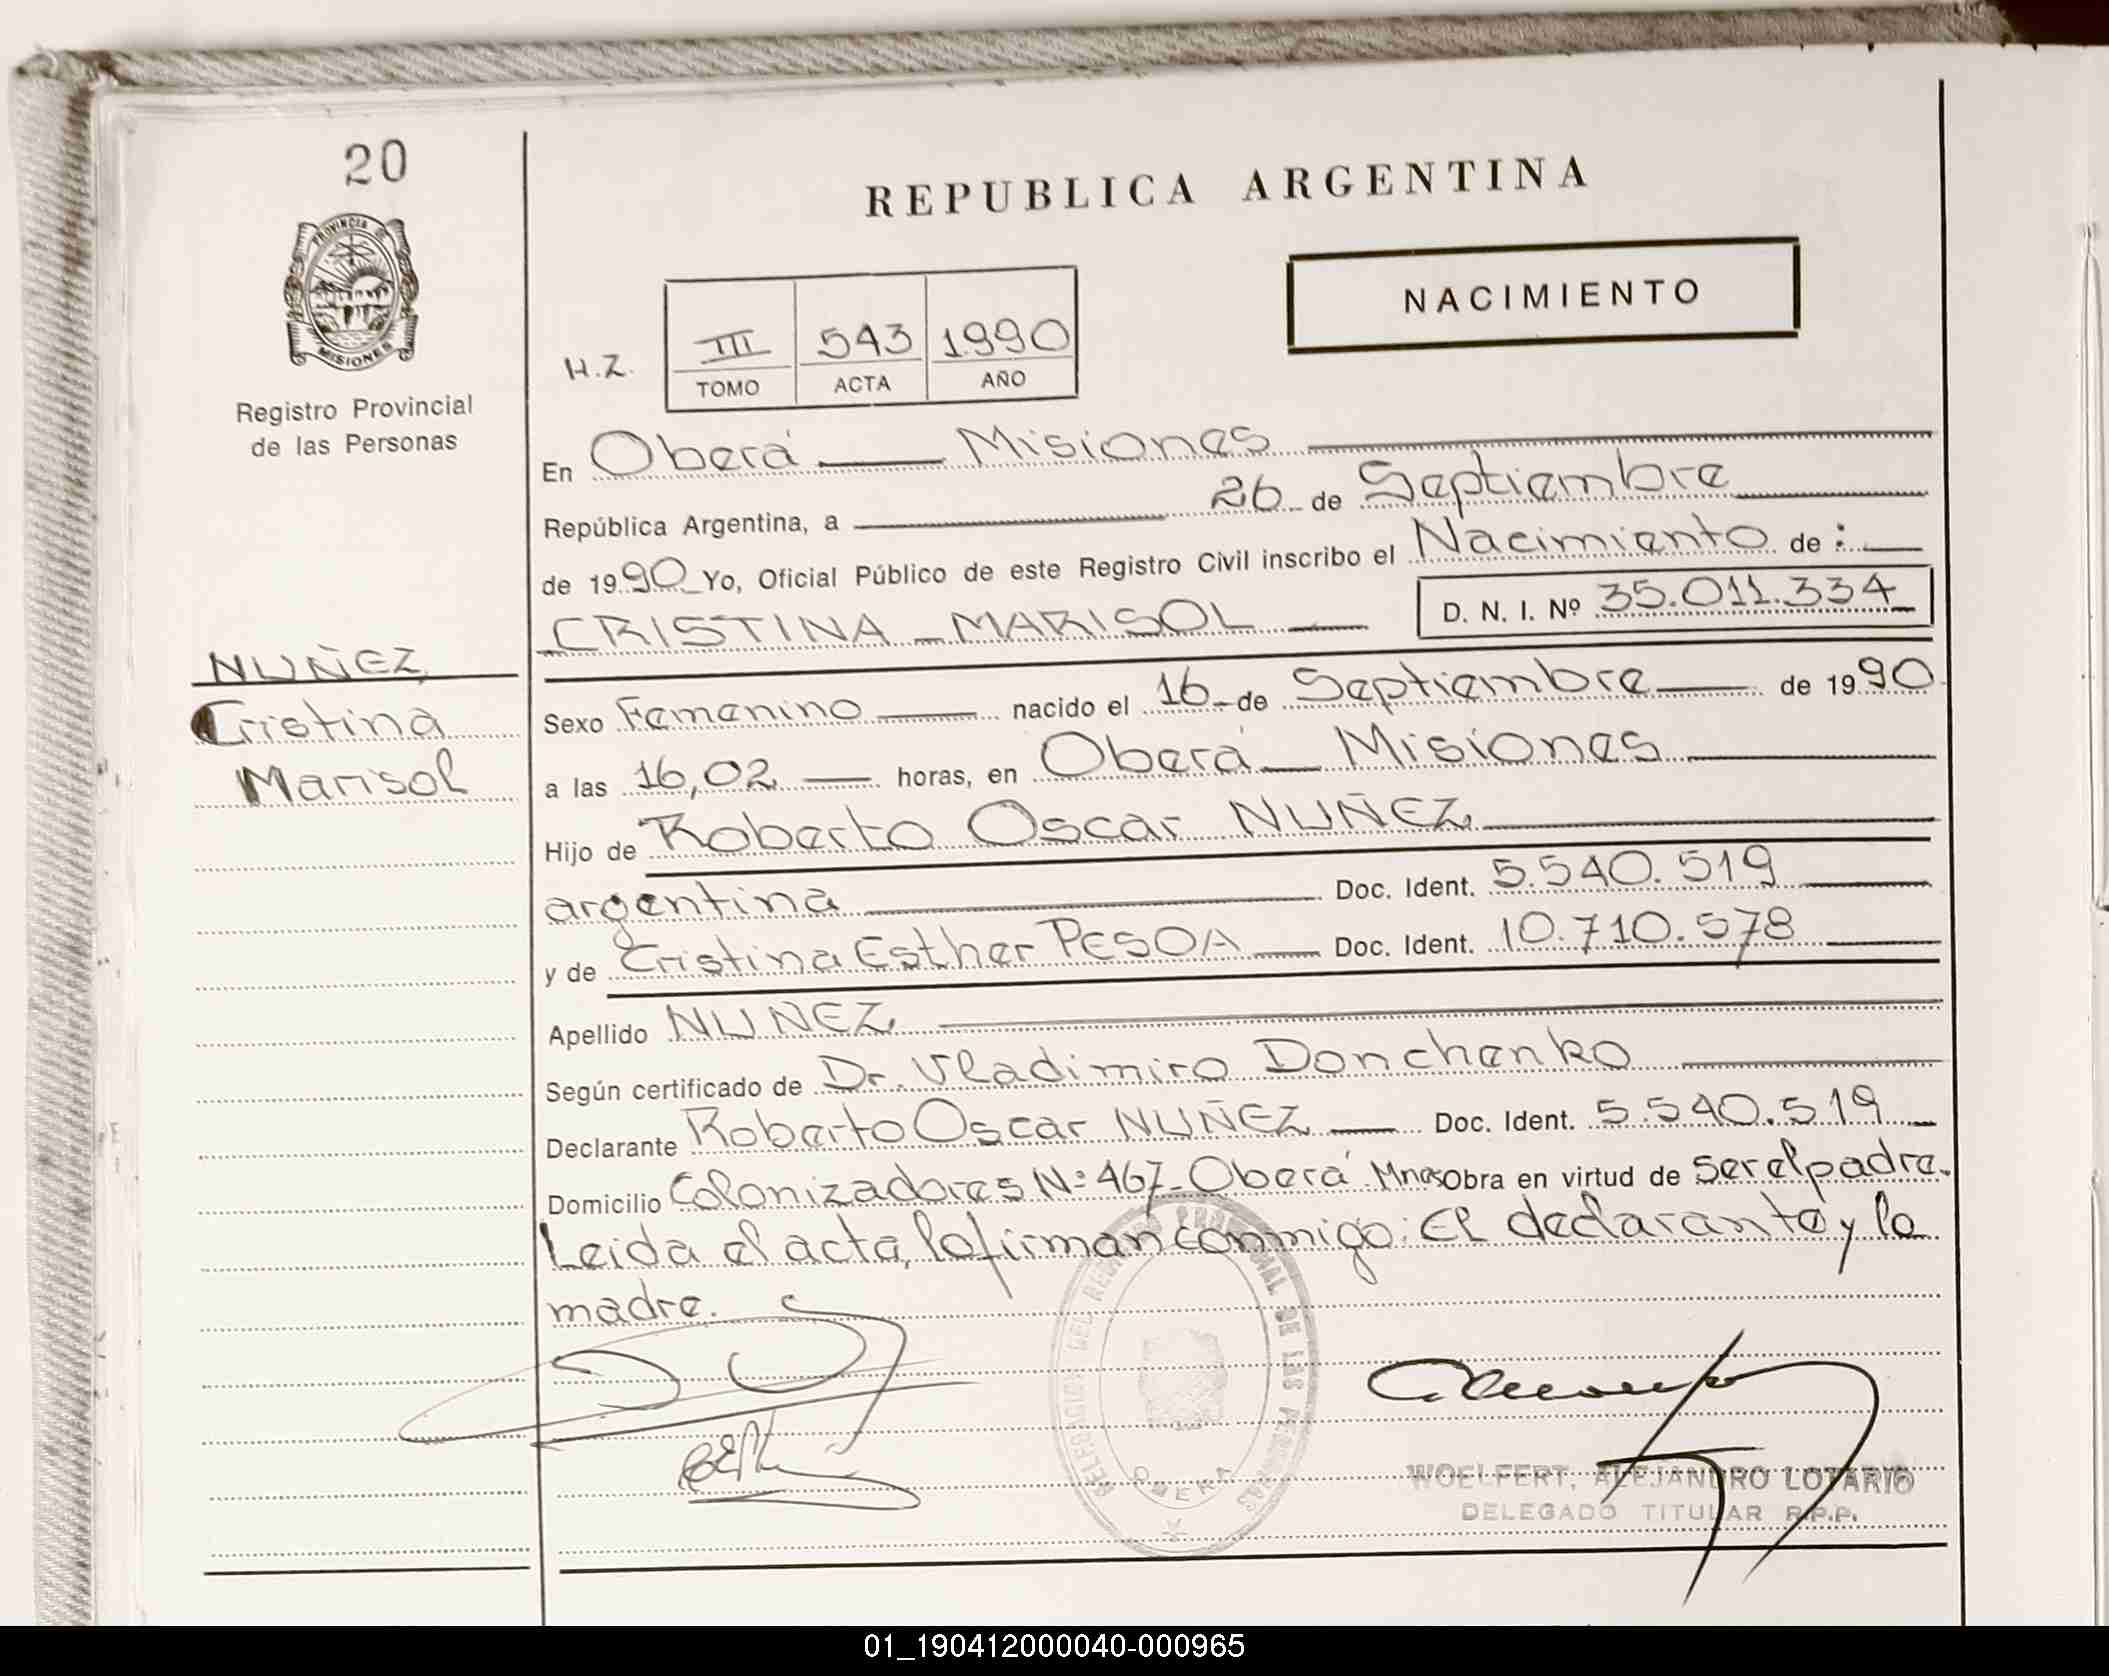 20
PROVINCIA DE
MISIONES
Registro Provincial
de las Personas
NUÑEZ,
Cristina
Marisol
REPUBLICA ARGENTINA
NACIMIENTO
H.Z.
III 543 1990
TOMO ACTA AÑO
En Oberá — Misiones
República Argentina, a 26 de Septiembre
de 1990 Yo, Oficial Público de este Registro Civil inscribo el Nacimiento de :
CRISTINA - MARISOL — D. N. I. Nº 35.011.334
Sexo Femenino — nacido el 16 - de Septiembre — de 1990
a las 16,02 — horas, en Oberá — Misiones
Hijo de Roberto Oscar NUÑEZ
argentina Doc. Ident. 5.540.519
y de Cristina Esther PESOA — Doc. Ident. 10.710.578
Apellido NUÑEZ
Según certificado de Dr. Vladimiro Donchenko
Declarante Roberto Oscar NUÑEZ — Doc. Ident. 5.540.519
Domicilio Colonizadores Nº 467 - Oberá Mnes Obra en virtud de ser el padre.
Leida el acta, la firman conmigo: El declarante y la
madre.
DELEGACION DEL REGISTRO PROVINCIAL DE LAS PERSONAS
WOELFERT, ALEJANDRO LOTARIO
DELEGADO TITULAR R.P.P.
01_190412000040-000965